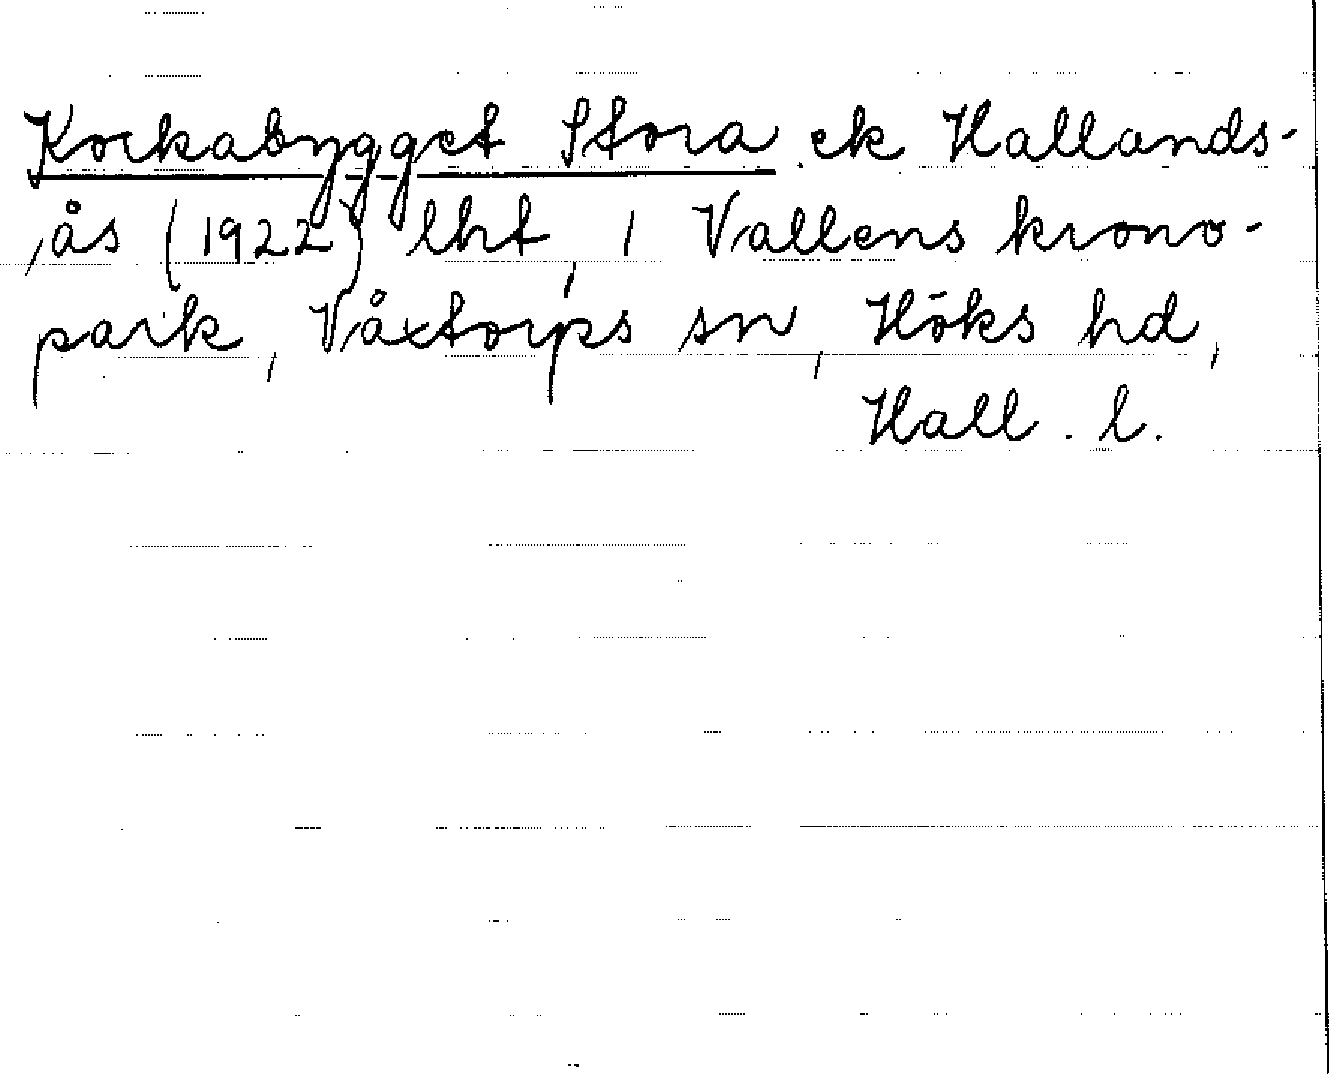 Kockabygget Stora ek Hallands-
ås (1922) lht, i Vallens krono-
park, Våxtorps sn, Höks hd,
Hall. l.